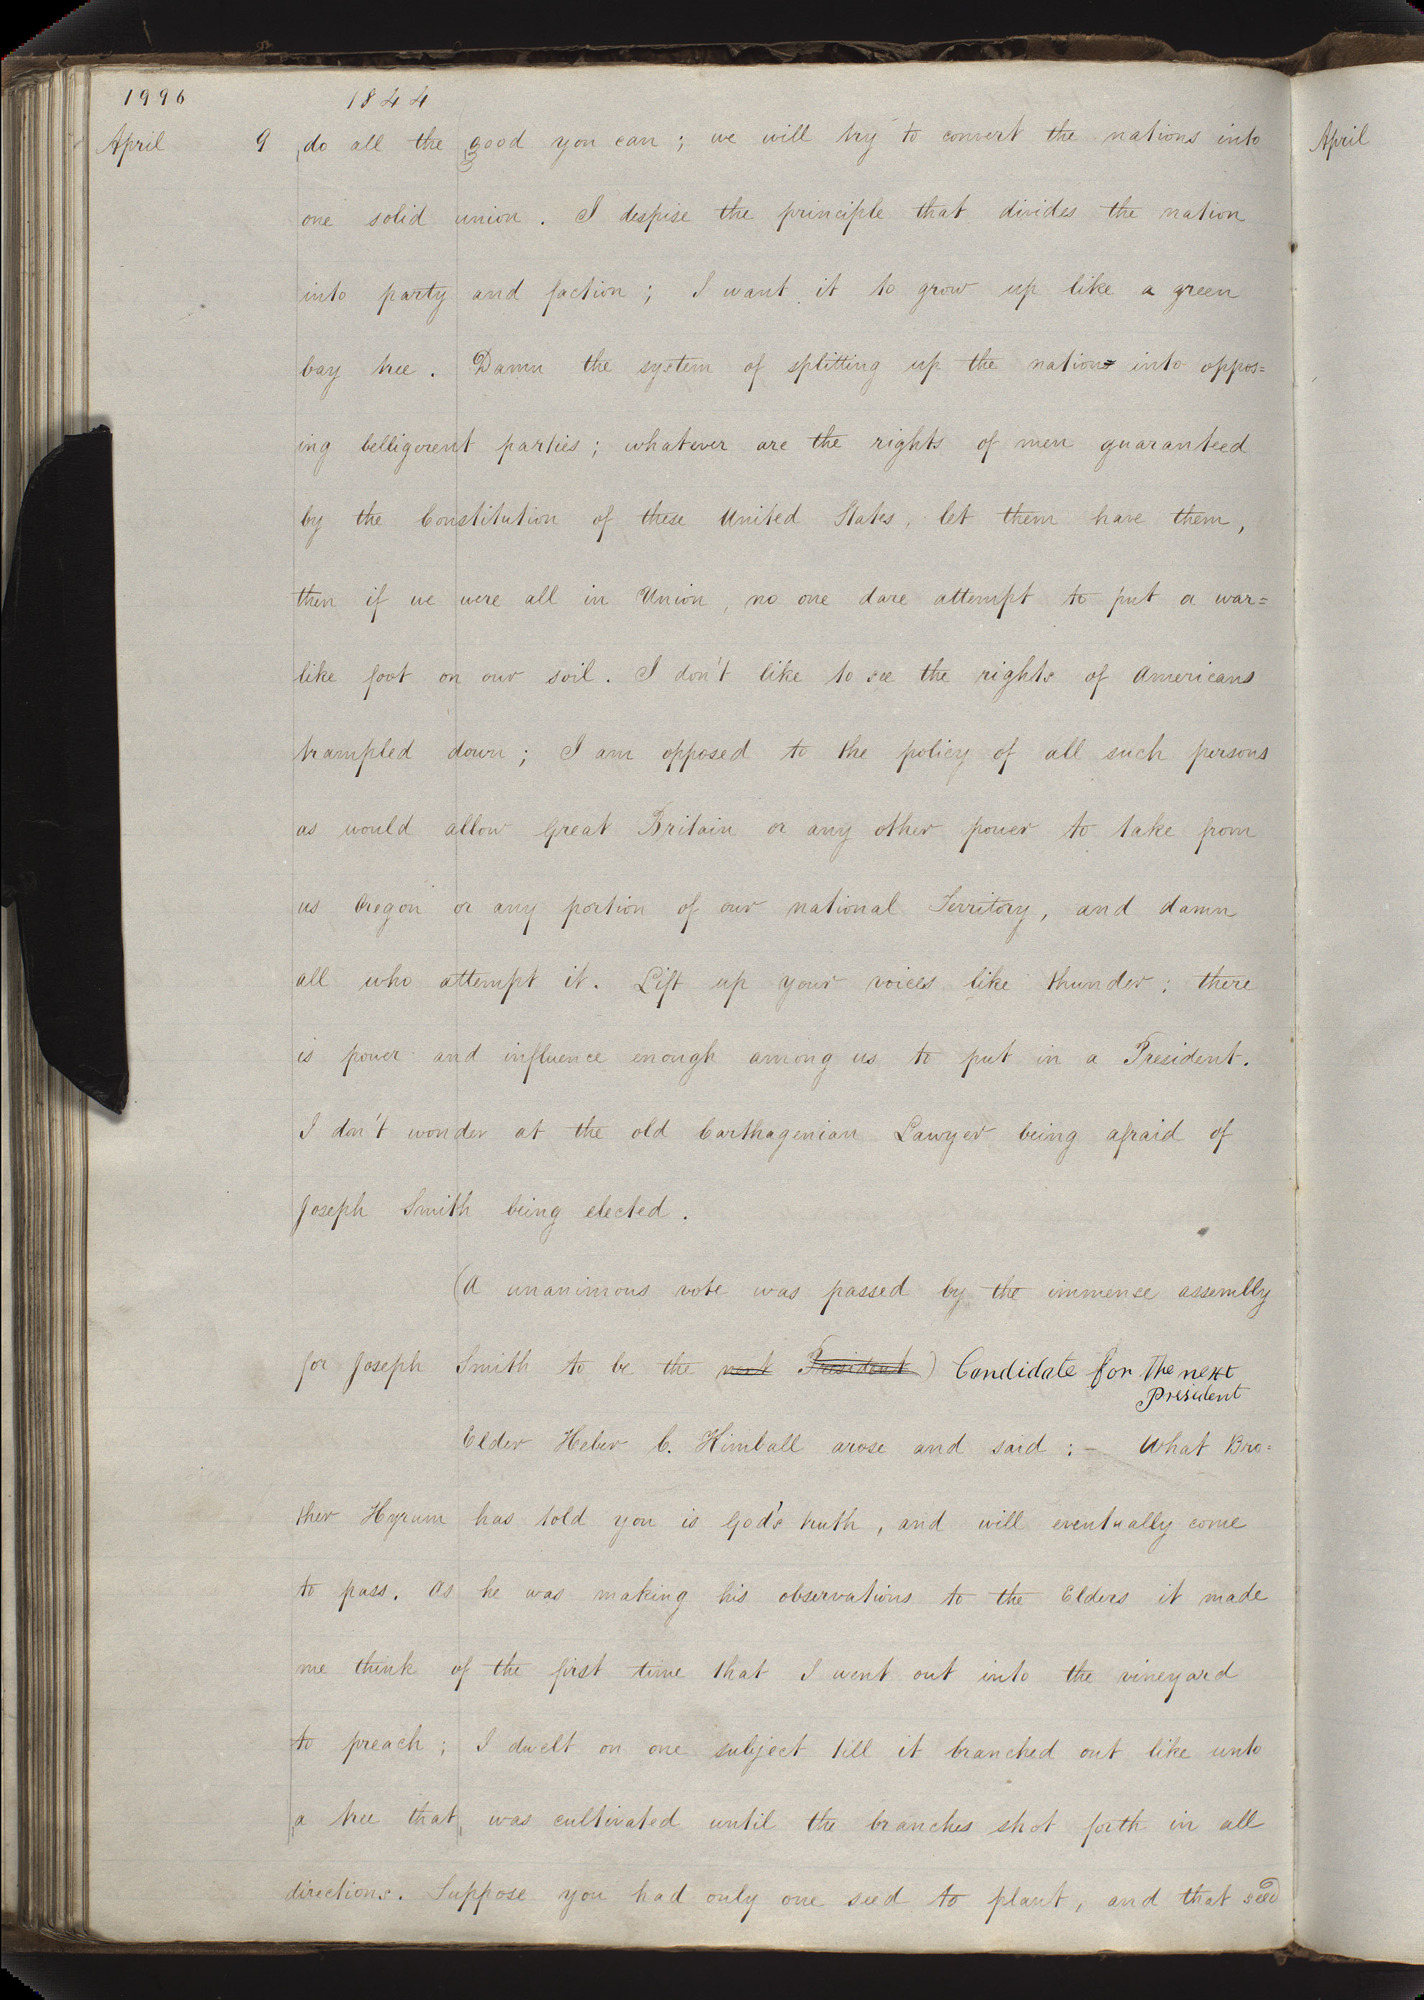 1996 1844
April 9 do all the good you can; we will try to convert the nations into
one solid union. I despise the principle that divides the nation
into party and faction; I want it to grow up like a green
bay tree. Damn the system of splitting up the nations into oppos=
ing belligerent parties; whatever are the rights of men guaranteed
by the Constitution of these United States, let them have them,
then if we were all in Union, no one dare attempt to put a war=
like foot on our soil. I don't like to see the rights of Americans
trampled down; I am opposed to the policy of all such persons
as would allow Great Britain or any other power to take from
us Oregon or any portion of our national Territory, and damn
all who attempt it. Lift up your voices like thunder; there
is power and influence enough among us to put in a President.
I don't wonder at the old Carthagenian Lawyer being afraid of
Joseph Smith being elected.
(A unanimous vote was passed by the immense assembly
for Joseph Smith to be the next President) Candidate for the next
President
Elder Heber C. Kimball arose and said:— What Bro=
ther Hyrum has told you is God's truth, and will eventually come
to pass. As he was making his observations to the Elders it made
me think of the first time that I went out into the vineyard
to preach; I dwelt on one subject till it branched out like unto
a tree that was cultivated until the branches shot forth in all
directions. Suppose you had only one seed to plant, and that seed
April